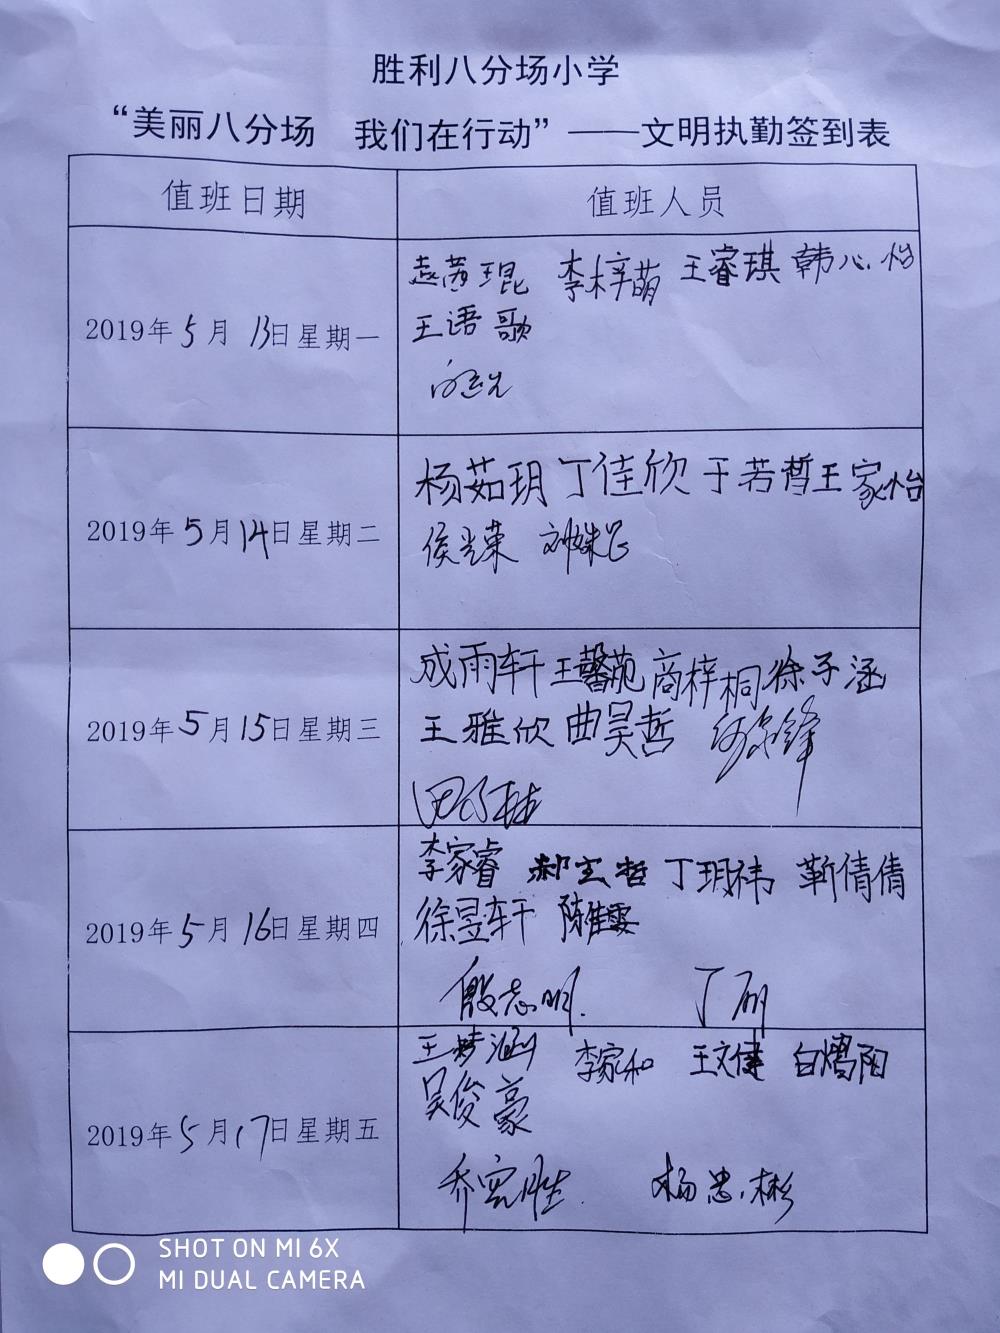 胜利八分场小学
“美丽八分场 我们在行动”——文明执勤签到表
值班日期 值班人员
2019年5月13日星期一
李梓萌 王睿琪 韩心怡
王语歌
2019年5月14日星期二
杨茹玥 丁佳欣 于若哲 王家怡
侯光荣
2019年5月15日星期三
成雨轩 王馨苑 商梓桐 徐子涵
王雅欣 曲昊哲
2019年5月16日星期四
李家睿 丁玥祎 靳倩倩
徐昱轩
殷志明 丁丽
2019年5月17日星期五
王梦涵 李家和 王文健
吴俊豪
乔宪胜 杨忠彬
SHOT ON MI 6X
MI DUAL CAMERA